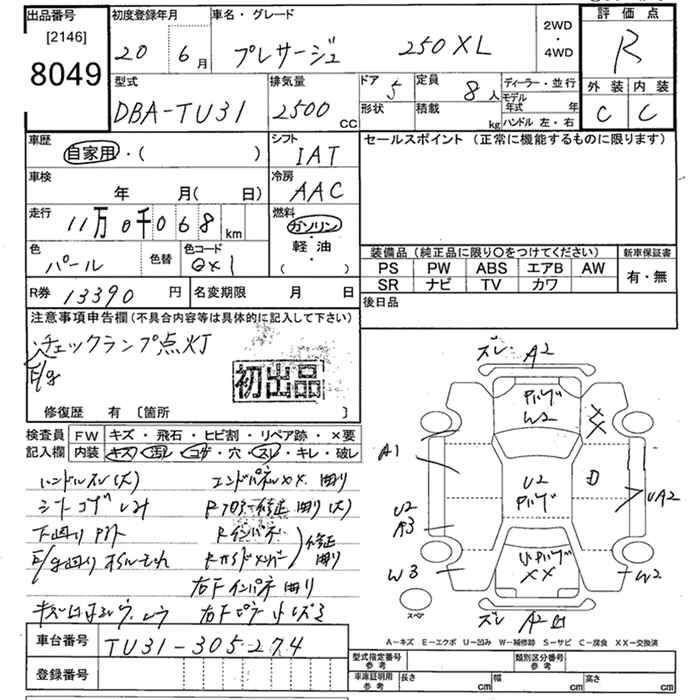 出品番号
[2146]
8049
初度登録年月
20 6月
車名・グレード
プレサージュ 250XL
2WD
・
4WD
評価点
R
外装 内装
C C
型式
DBA-TU31
排気量
2500 CC
ドア 5
定員 8人
形状
積載 kg
ディーラー・並行
モデル年式 年
ハンドル 左・右
車歴
自家用・( )
シフト
IAT
車検
年 月( 日)
冷房
AAC
走行
11万0千068 km
燃料
ガソリン
・
軽油
( )
色
パール
色替
色コード
QX1
R券 13390 円
名変期限 月 日
セールスポイント (正常に機能するものに限ります)
装備品(純正品に限り○をつけてください)
PS PW ABS エアB AW
SR ナビ TV カワ
新車保証書
有・無
後日品
注意事項申告欄(不具合内容等は具体的に記入して下さい)
チェックランプ点灯
E/g
初出品
修復歴 有 [箇所 ]
検査員記入欄
FW キズ・飛石・ヒビ割・リペア跡・×要
内装 キズ・汚レ・コゲ・穴・スレ・キレ・破レ
ハンドルスレ(大) エンドパネルXX 曲り
シートコゲ
下廻り
Rフロアー修正 曲り(大)
Rインパネ
Rサイドメンバー 修正 曲り
右Fインパネ 曲り
ズレ A2
Pハゲ
W2
XX
A1
U2
Pハゲ
D
U2
A3
UA2
W3
UPハゲ
XX
W2
スペア
ズレ A2
A-キズ E-エクボ U-凹み W-補修跡 S-サビ C-腐食 XX-交換済
車台番号 TU31-305274
登録番号
型式指定番号
参考
類別区分番号
参考
車庫証明用
参考
長さ cm 幅 cm 高さ cm